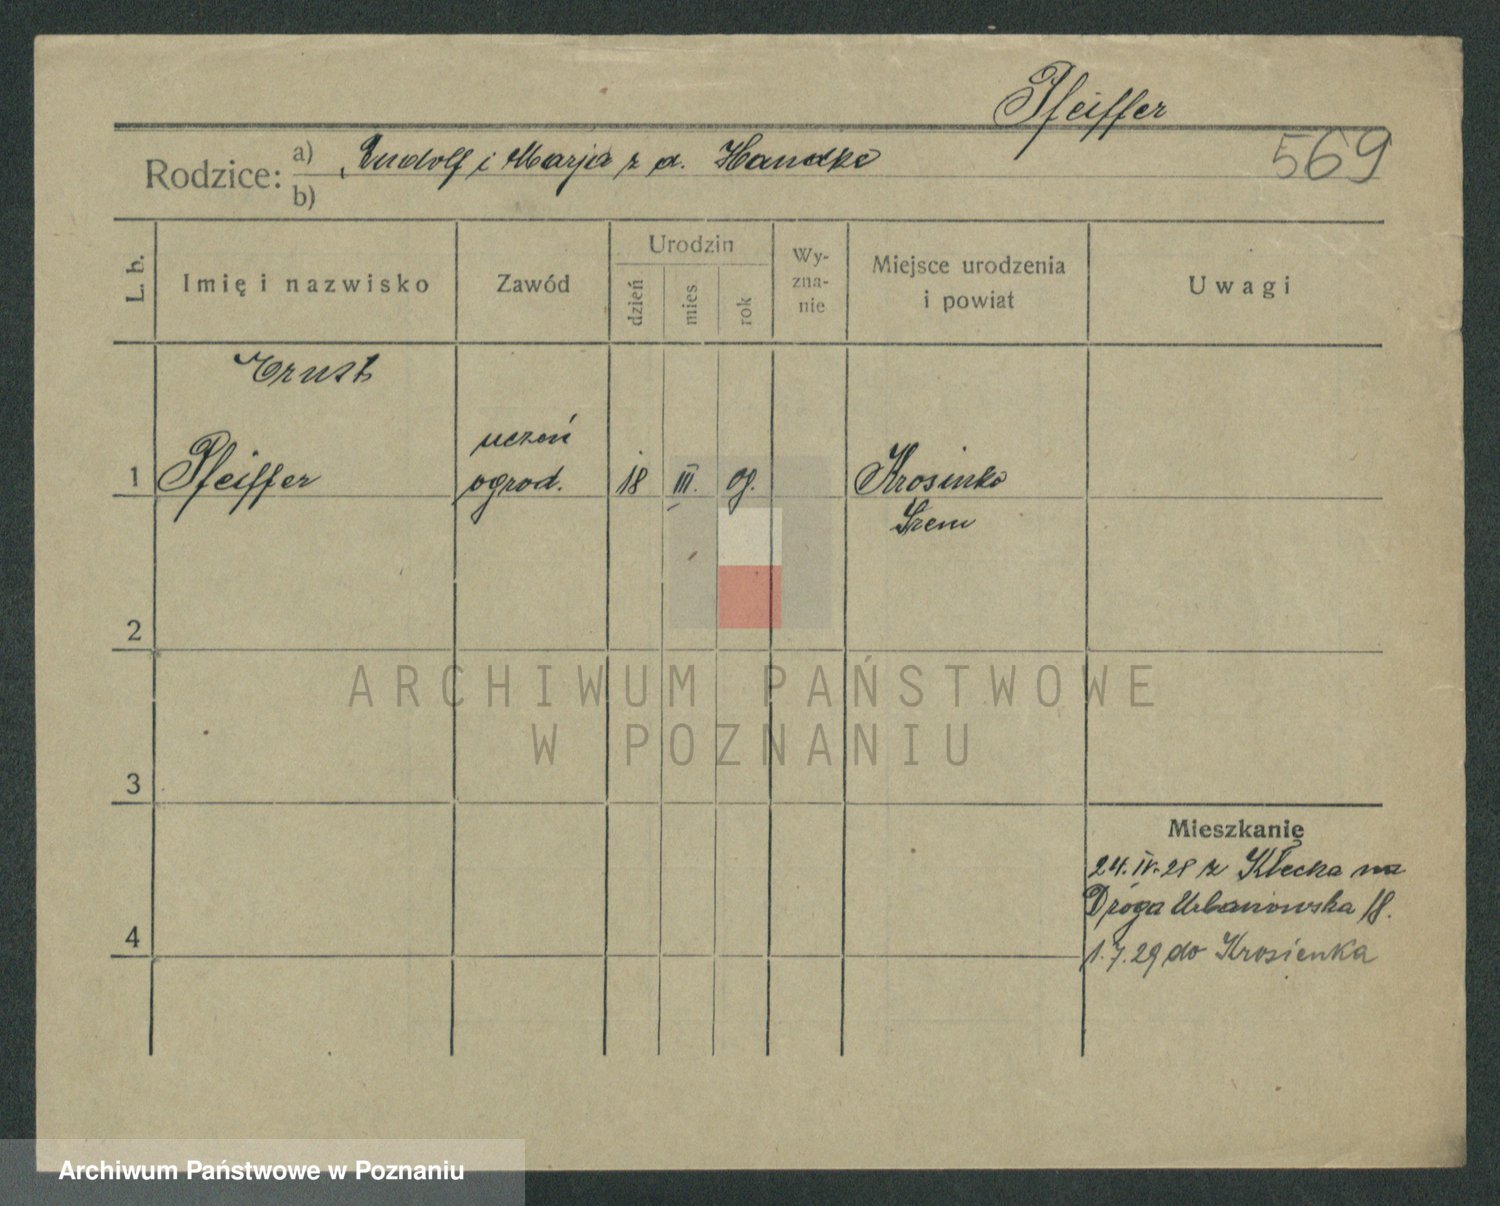 Pfeiffer
569
Rodzice: a) Rudolf i Marja z d. Handke
b)
L. b.
Imię i nazwisko
Zawód
Urodzin
dzień
mies
rok
Wy-
zna-
nie
Miejsce urodzenia
i powiat
Uwagi
Ernst
uczeń
1 Pfeiffer ogrod. 18 III. 09. Krosinko
Śrem
2
3
4
Mieszkanie
24. IV. 28 z Kłecka na
Droga Urbanowska 18.
1. 7. 29 do Krosienka
ARCHIWUM PAŃSTWOWE
W POZNANIU
Archiwum Państwowe w Poznaniu